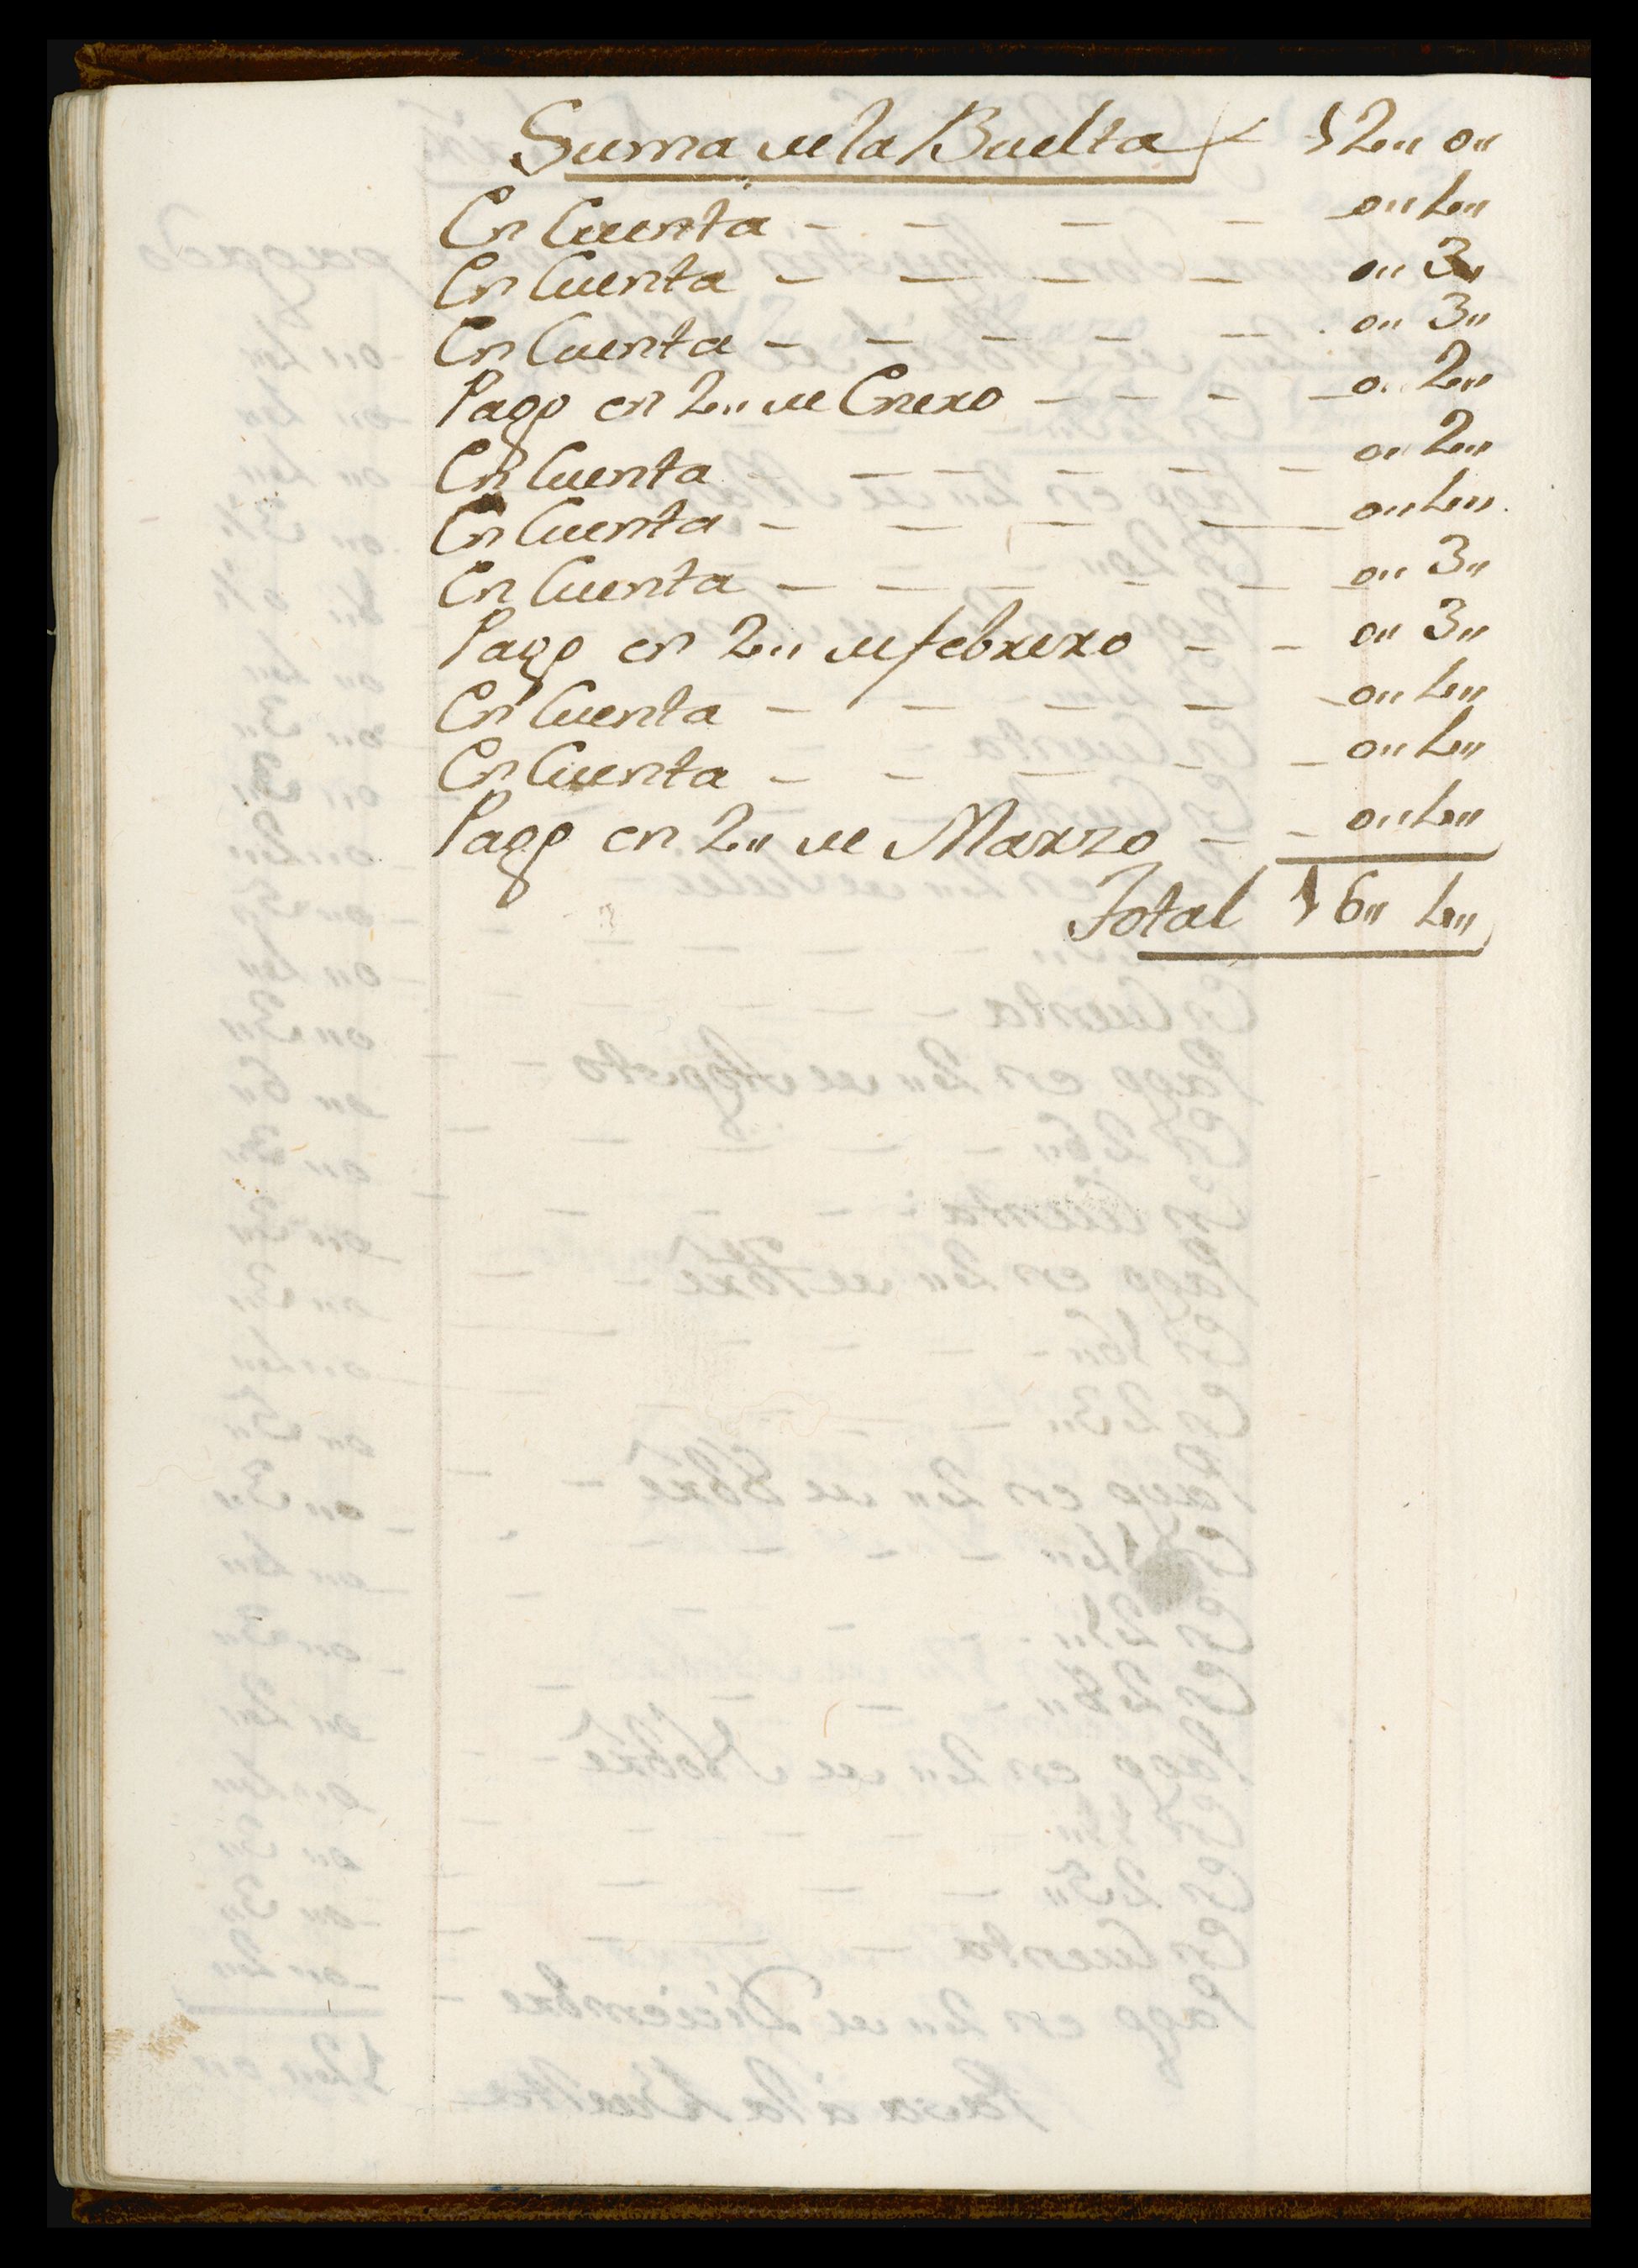 Suma de la Buelta 12,, 0,,
En Cuenta - - - - 0,, 4,,
En Cuenta - - - - 0,, 3,,
En Cuenta - - - - - 0,, 3,,
Pago en 2,, de Enero - - - - 0,, 2,,
En Cuenta - - - - - - 0,, 2,,
En Cuenta - - - - 0,, 4,,
En Cuenta - - - - - - 0,, 3,,
Pago en 2,, de febrero - - 0,, 3,,
En Cuenta - - - - - 0,, 4,,
En Cuenta - - - - - 0,, 4,,
Pago en 2,, de Marzo - - 0,, 4,,
Total 16,, 4,,